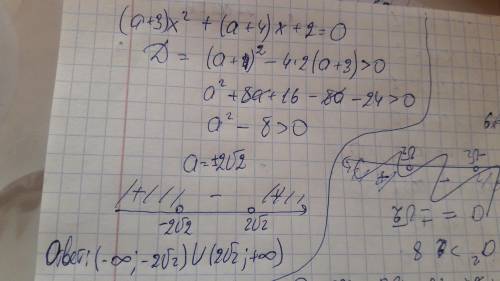 (a+3)x² + (a+4)x + 2 = 0
D = (a+4)² - 4·2(a+3) > 0
a² + 8a + 16 - 8a - 24 > 0
a² - 8 > 0
a = ±2√2
+ - +
-2√2 2√2
Ответ: (-∞; -2√2) ∪ (2√2; +∞)